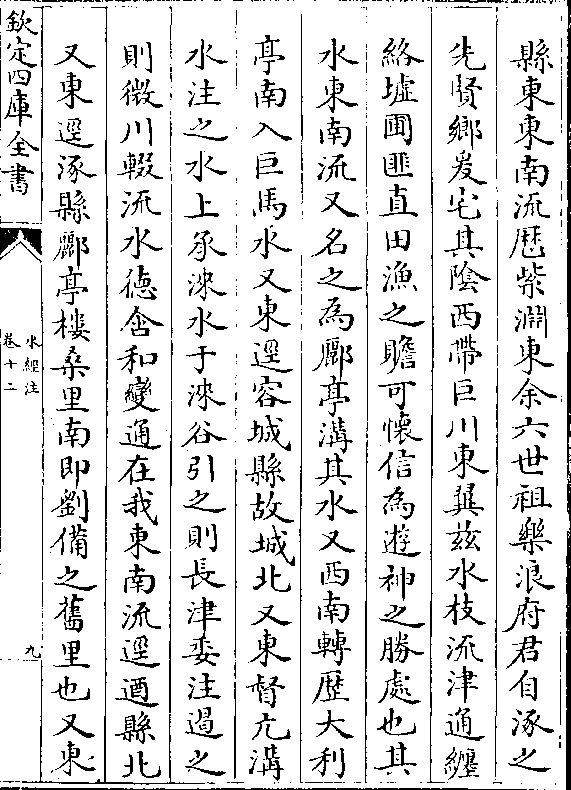 縣東東南流歴紫淵東余六世祖樂浪府君自涿之
先賢鄉爰宅其陰西帶巨川東翼兹水枝流津通纏
絡墟圃匪直田漁之贍可懷信為遊神之勝處也其
水東南流又名之為酈亭溝其水又西南轉歴大利
亭南入巨馬水又東逕容城縣故城北又東督亢溝
水注之水上承淶水于淶谷引之則長津委注遏之
則微川輟流水德含和變通在我東南流逕遒縣北
又東逕涿縣酈亭樓桑里南即劉備之舊里也又東
欽定四庫全書
水經注
卷十二
九